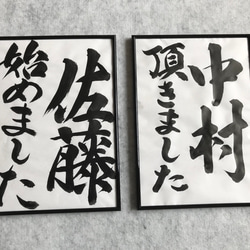 中村
頂きました
佐藤
始めました